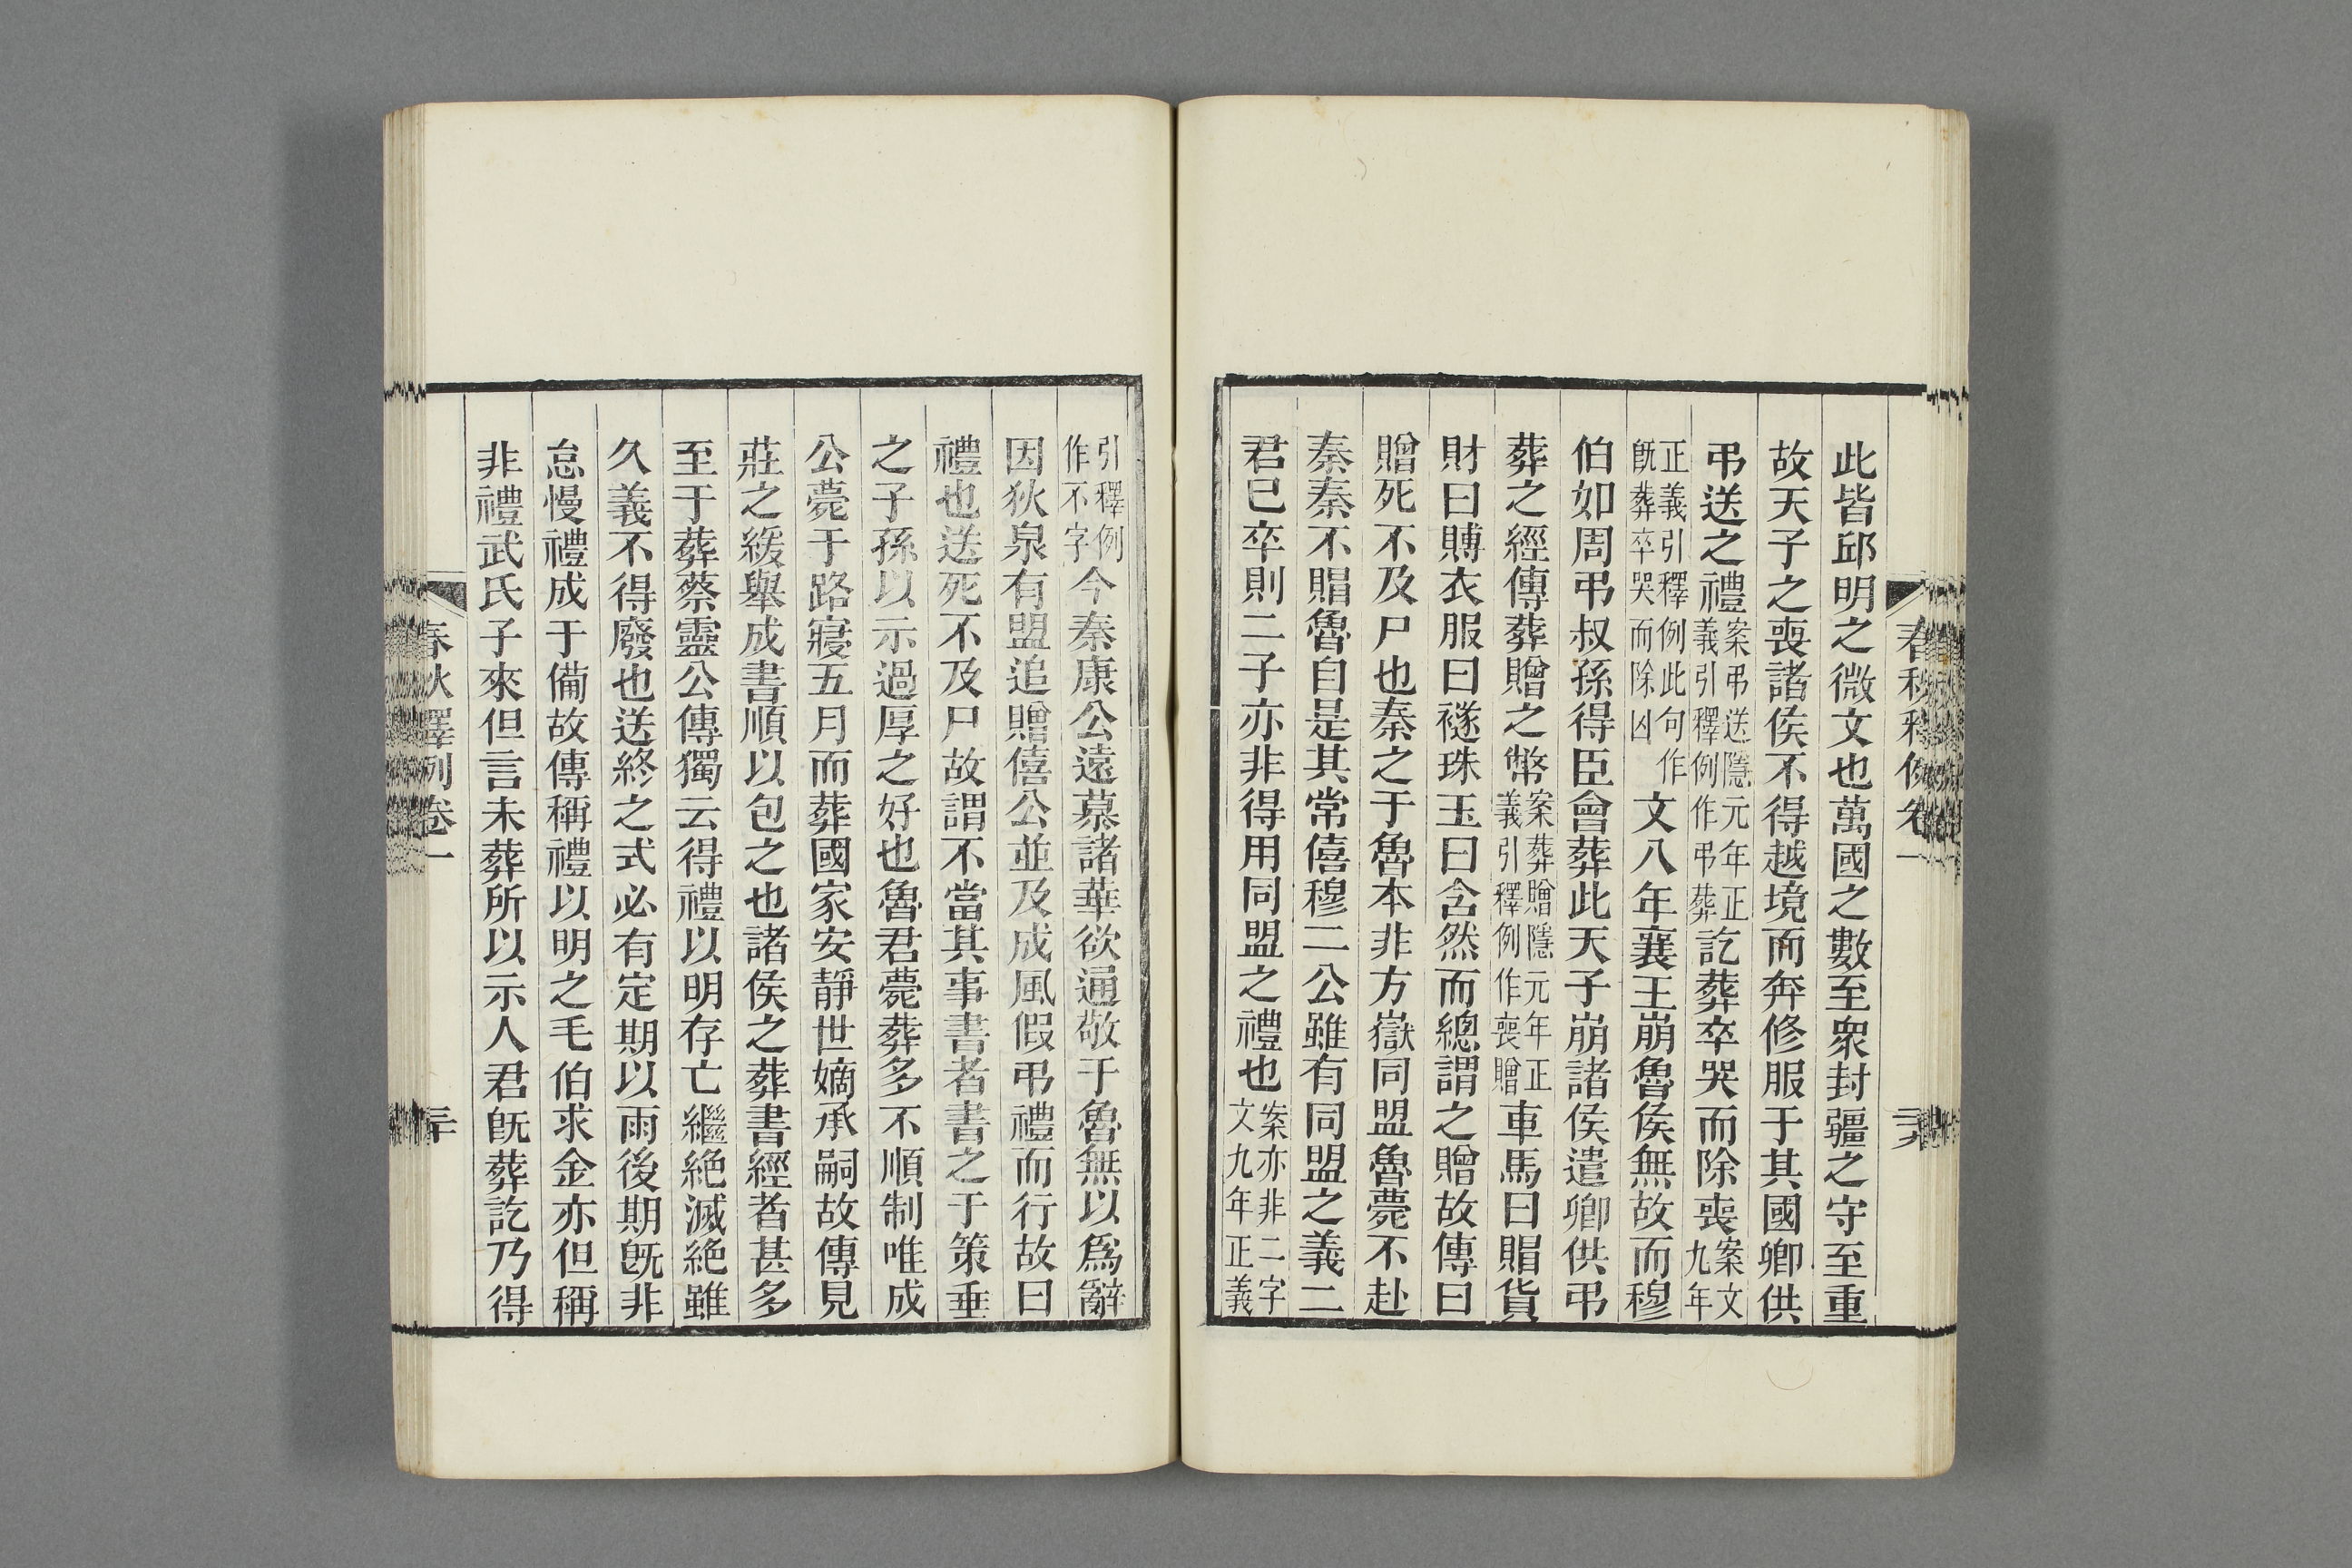 春秋釋例卷一
此皆邱明之微文也萬國之數至衆封疆之守至重
故天子之喪諸侯不得越境而奔修服于其國卿供
弔送之禮案弔送隱元年正義引釋例作弔葬訖葬卒哭而除喪案文九年
正義引釋例此句作旣葬卒哭而除凶文八年襄王崩魯侯無故而穆
伯如周弔叔孫得臣會葬此天子崩諸侯遣卿供弔
葬之經傳葬贈之幣案葬贈隱元年正義引釋例作喪贈車馬曰賵貨
財曰賻衣服曰襚珠玉曰含然而總謂之贈故傳曰
贈死不及尸也秦之于魯本非方嶽同盟魯薨不赴
秦秦不賵魯自是其常僖穆二公雖有同盟之義二
君已卒則二子亦非得用同盟之禮也案亦非二字文九年正義
引釋例作不字今秦康公遠慕諸華欲通敬于魯無以爲辭
因狄泉有盟追贈僖公並及成風假弔禮而行故曰
禮也送死不及尸故謂不當其事書者書之于策垂
之子孫以示過厚之好也魯君薨葬多不順制唯成
公薨于路寢五月而葬國家安靜世嫡承嗣故傳見
莊之緩舉成書順以包之也諸侯之葬書經者甚多
至于葬蔡靈公傳獨云得禮以明存亡繼絶滅絶雖
久義不得廢也送終之式必有定期以雨後期旣非
怠慢禮成于備故傳稱禮以明之毛伯求金亦但稱
非禮武氏子來但言未葬所以示人君旣葬訖乃得
春秋釋例卷一
三十